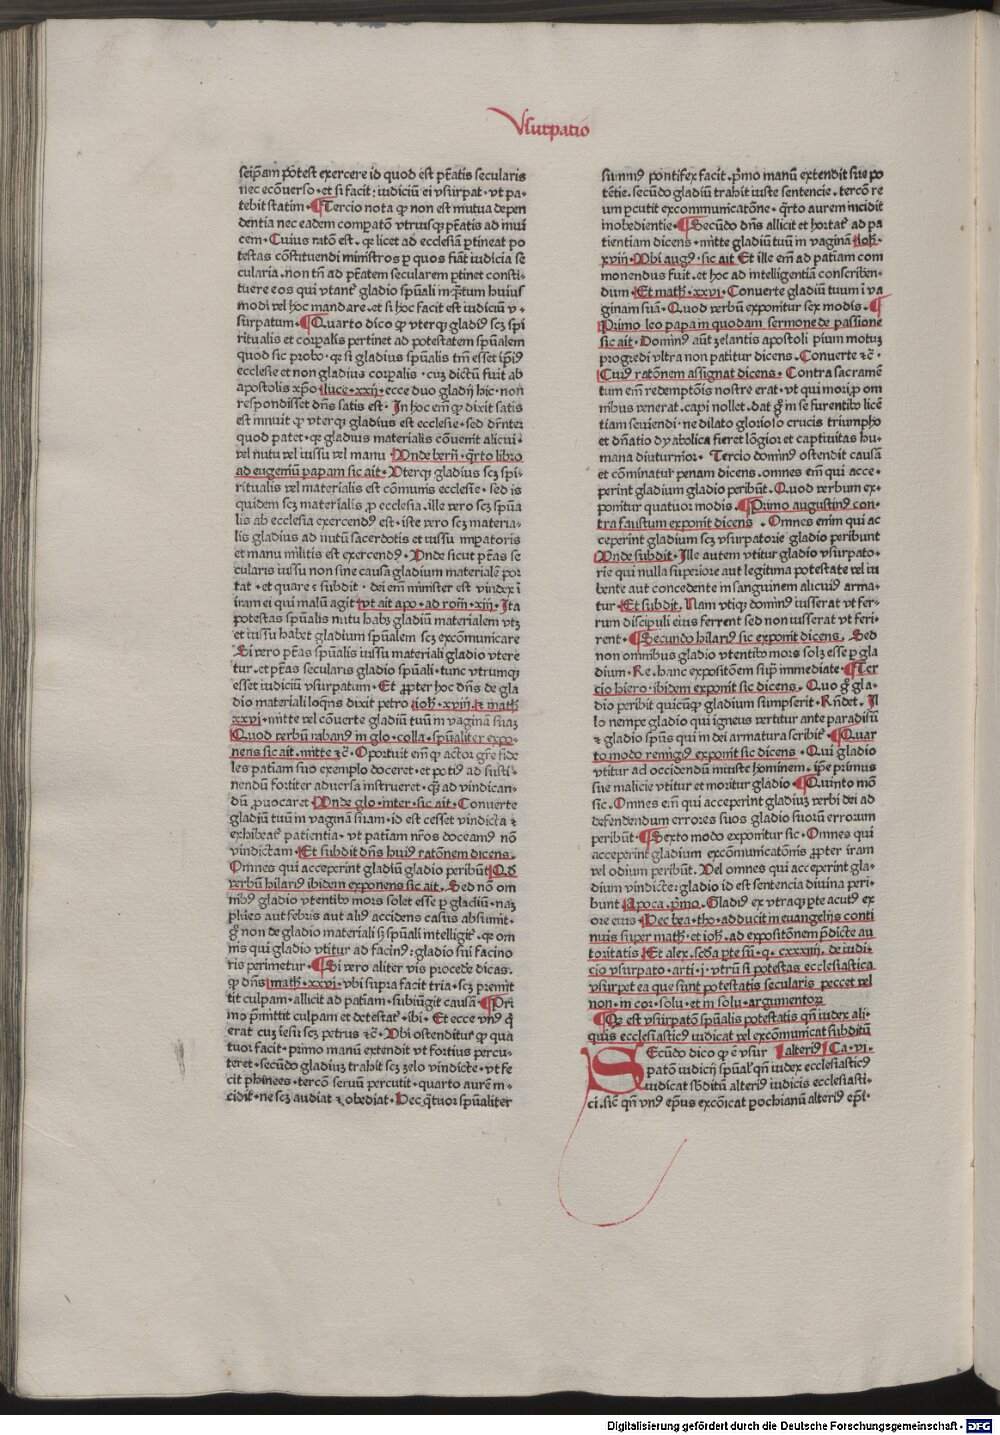 Vsurpatio
seip̄am potest exercere id quod est ptātis secularis
nec ecōuerso · et si facit : iudiciū ei vsurpat · vt pa-
tebit statim · ¶ Tercio nota ꝙ non est mutua depen
dentia nec eadem compatō vtrusqꝫ ptātis ad inui
cem · Cuius ratō est · qꝛ licet ad ecclesiā ꝑtineat po
testas cōstituendi ministros ꝑ quos fiāt iudicia se
cularia · non tn̄ ad ptātem secularem ꝑtinet consti-
tuere eos qui vtant᷑ gladio spūali in q̄tum huius
modi vel hoc mandare · et si hoc facit est iudiciū v-
surpatum · ¶ Quarto dico ꝙ vterqꝫ gladiꝰ scꝫ spi
ritualis et corꝑalis pertinet ad potestatem spūalem
quod sic probo · qꝛ si gladius spūalis tm̄ esset ip̄iꝰ
ecclesie et non gladius corꝑalis · cuꝫ dictū fuit ab
apostolis xp̄o luce · xxij · ecce duo gladij hic · non
respondisset dn̄s satis est · In hoc em̄ ꝙ dixit satis
est innuit ꝙ vterqꝫ gladius est ecclesie · sed dr̄nter
quod patet · qꝛ gladius materialis cōuenit alicui ·
vel nutu vel iussu vel manu · Vnde bern̄ · q̄rto libro
ad eugeniū papam sic ait · Vterqꝫ gladius scꝫ spi-
ritualis vel materialis est cōmunis ecclesie · sed is
quidem scꝫ materialis ꝓ ecclesia · ille vero scꝫ spūa
lis ab ecclesia exercendꝰ est · iste vero scꝫ materia-
lis gladius ad nutū sacerdotis et iussu imꝑatoris
et manu militis est exercendꝰ · Vnde sicut ptās se
cularis iussu non sine causa gladium materialē por
tat · et quare subdit · dei em̄ minister est vindex ī
iram ei qui malū agit vt ait apo · ad rom̄ · xiij · Ita
potestas spūalis nutu habꝫ gladiū materialem vtꝫ
et iussu habet gladium spūalem scꝫ excōmunicare
Si vero ptās spūalis iussu materiali gladio vtere
tur · et ptās secularis gladio spūali · tunc vtrumqꝫ
esset iudiciū vsurpatum · Et ꝓpter hoc dn̄s de gla
dio materiali loqn̄s dixit petro ioh · xviij · et math
xxvi · mitte vel cōuerte gladiū tuū in vaginā suaꝫ
Quod verbū rabanꝰ in glo · colla · spūaliter expo-
nens sic ait · mitte ⁊c̄ · Oportuit em̄ ꝙ actor gr̄e fide
les patiam suo exemplo doceret · et potiꝰ ad susti-
nendū fortiter aduersa instrueret · q̄ꝫ ad vindican-
dū ꝓuocaret · Vnde glo · inter · sic ait · Conuerte
gladiū tuū in vaginā suam · id est cesset vindicta ⁊
exhibeat᷑ patientia · vt patiam nr̄os doceamꝰ nō
vindictam · Et subdit dn̄s huiꝰ ratōnem dicens ·
Omnes qui acceperint gladiū gladio peribūt Qd̄
verbū hilariꝰ ibidem exponens sic ait · Sed nō om
nibꝰ gladio vtentibꝰ mors solet esse ꝑ gladiū · naꝫ
plu̅es aut febris aut aliꝰ accidens casus absumit ·
gͦ non de gladio materiali sꝫ spūali intelligit᷑ · qꝛ om
nis qui gladio vtitur ad facinꝰ : gladio sui facino
ris perimetur · ¶ Si vero aliter vis procede dicas ·
ꝙ dn̄s math · xxvi · vbi supra facit tria · scꝫ premit
tit culpam · allicit ad patiam · subiūgit causā ¶ Pri
mo p̄mittit culpam et detestat᷑ · ibi · Et ecce vnꝰ q̄
erat cuꝫ iesu scꝫ petrus ⁊c̄ · Vbi ostenditur ꝙ qua
tuor facit · primo manū extendit vt fortius percu-
teret · secūdo gladiuꝫ trahit scꝫ zelo vindicte · vt fe
cit phinees · tercō seruū percutit · quarto aurem in-
cidit · ne scꝫ audiat ⁊ obediat · Hec q̄tuor spūaliter
summꝰ pontifex facit · p̄mo manū extendit sue po
tētie · secūdo gladiū trahit iuste sentencie · tercō re
um ꝑcutit excommunicatōne · q̄rto aurem incidit
inobedientie · ¶ Secūdo dn̄s allicit et hortat᷑ ad pa
tientiam dicens · mitte gladiū tuū in vaginā ioh ·
xviij · Vbi augꝰ · sic ait Et ille em̄ ad patiam com
monendus fuit · et hoc ad intelligentiā conscriben-
dum · Et math · xxvi · Conuerte gladiū tuum ī va
ginam suā · Quod verbū exponitur sex modis · ¶
Primo leo papa in quodam sermone de passione
sic ait · Dominꝰ aūt zelantis apostoli pium motuꝫ
progredi vltra non patitur dicens · Conuerte ⁊c̄ ·
Cuiꝰ ratōnem assignat dicens · Contra sacramē
tum em̄ redemptōis nostre erat · vt qui mori ꝓ om
nibus venerat · capi nollet · dat gͦ in se furentibꝰ licē
tiam seuiendi · ne dilato glorioso crucis triumpho
et dn̄atio dyabolica fieret lōgior et captiuitas hu-
mana diuturnior · Tercio dominꝰ ostendit causā
et cōminatur penam dicens · omnes em̄ qui acce-
perint gladium gladio peribūt · Quod verbum ex-
ponitur quatuor modis · ¶ Primo augustinꝰ con-
tra faustum exponit dicens · Omnes enim qui ac
ceperint gladium scꝫ vsurpatorie gladio peribunt
Vnde subdit · Ille autem vtitur gladio vsurpato-
rie qui nulla superiore aut legitima potestate vel iu
bente aut concedente in sanguinem alicuiꝰ arma-
tur · Et subdit · Nam vtiqꝫ dominꝰ iusserat vt fer-
rum discipuli eius ferrent sed non iusserat vt feri-
rent · ¶ Secundo hilariꝰ sic exponit dicens · Sed
non omnibus gladio vtentibꝰ mors solꝫ esse ꝑ gla
dium · Re · hanc expositōem sup̄ immediate · ¶ Ter
cio hiero · ibidem exponit sic dicens · Quo gͦ gla-
dio peribit quicūqꝫ gladium sumpserit · Rn̄det · Il
lo nempe gladio qui igneus vertitur ante paradisū
⁊ gladio spūs qui in dei armatura scribit᷑ · ¶ Quar
to modo remigiꝰ exponit sic dicens · Qui gladio
vtitur ad occidendū iniuste hominem · ip̄e primus
sue malicie vtitur et moritur gladio · ¶ Quinto mō
sic · Omnes em̄ qui acceperint gladiuꝫ verbi dei ad
defendendum errores suos gladio suorū errorum
peribūt · ¶ Sexto modo exponitur sic · Omnes qui
acceperint gladium excōmunicatōnis ꝓpter iram
vel odium peribūt · Vel omnes qui acceperint gla-
dium vindicte : gladio id est sentencia diuina peri-
bunt Apoca · p̄mo · Gladiꝰ ex vtraqꝫ ꝑte acutꝰ ex
ore eius · Hec bea · tho · adducit in euangelijs conti
nuis super math · et ioh · ad expositōnem p̄dicte au
toritatis Et alex · scd̄a ꝑte sū · q · cxxxiiij · de iudi-
cio vsurpato · arti · j · vtrū si potestas ecclesiastica
vsurpet ea que sunt potestatis secularis peccet vel
non · in cor · solu · et in solu · argumentoꝝ
¶ Qr̄ est vsurpatō spūalis potestatis qn̄ iudex ali-
quis ecclesiasticꝰ iudicat vel excōmunicat subditū
SEcūdo dico ꝙ ē vsur alteriꝰ Ca · vi ·
patō iudicij spūal᷑ qn̄ iudex ecclesiasticꝰ
iudicat sbditū alteriꝰ iudicis ecclesiasti-
ci · sic̄ qn̄ vnꝰ ep̄us excōicat ꝑochianū alteriꝰ ep̄i ·
Digitalisierung gefördert durch die Deutsche Forschungsgemeinschaft - DFG